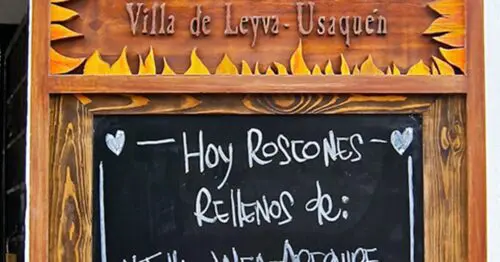 Villa de Leyva - Usaquén
Hoy Roscones
Rellenos de: